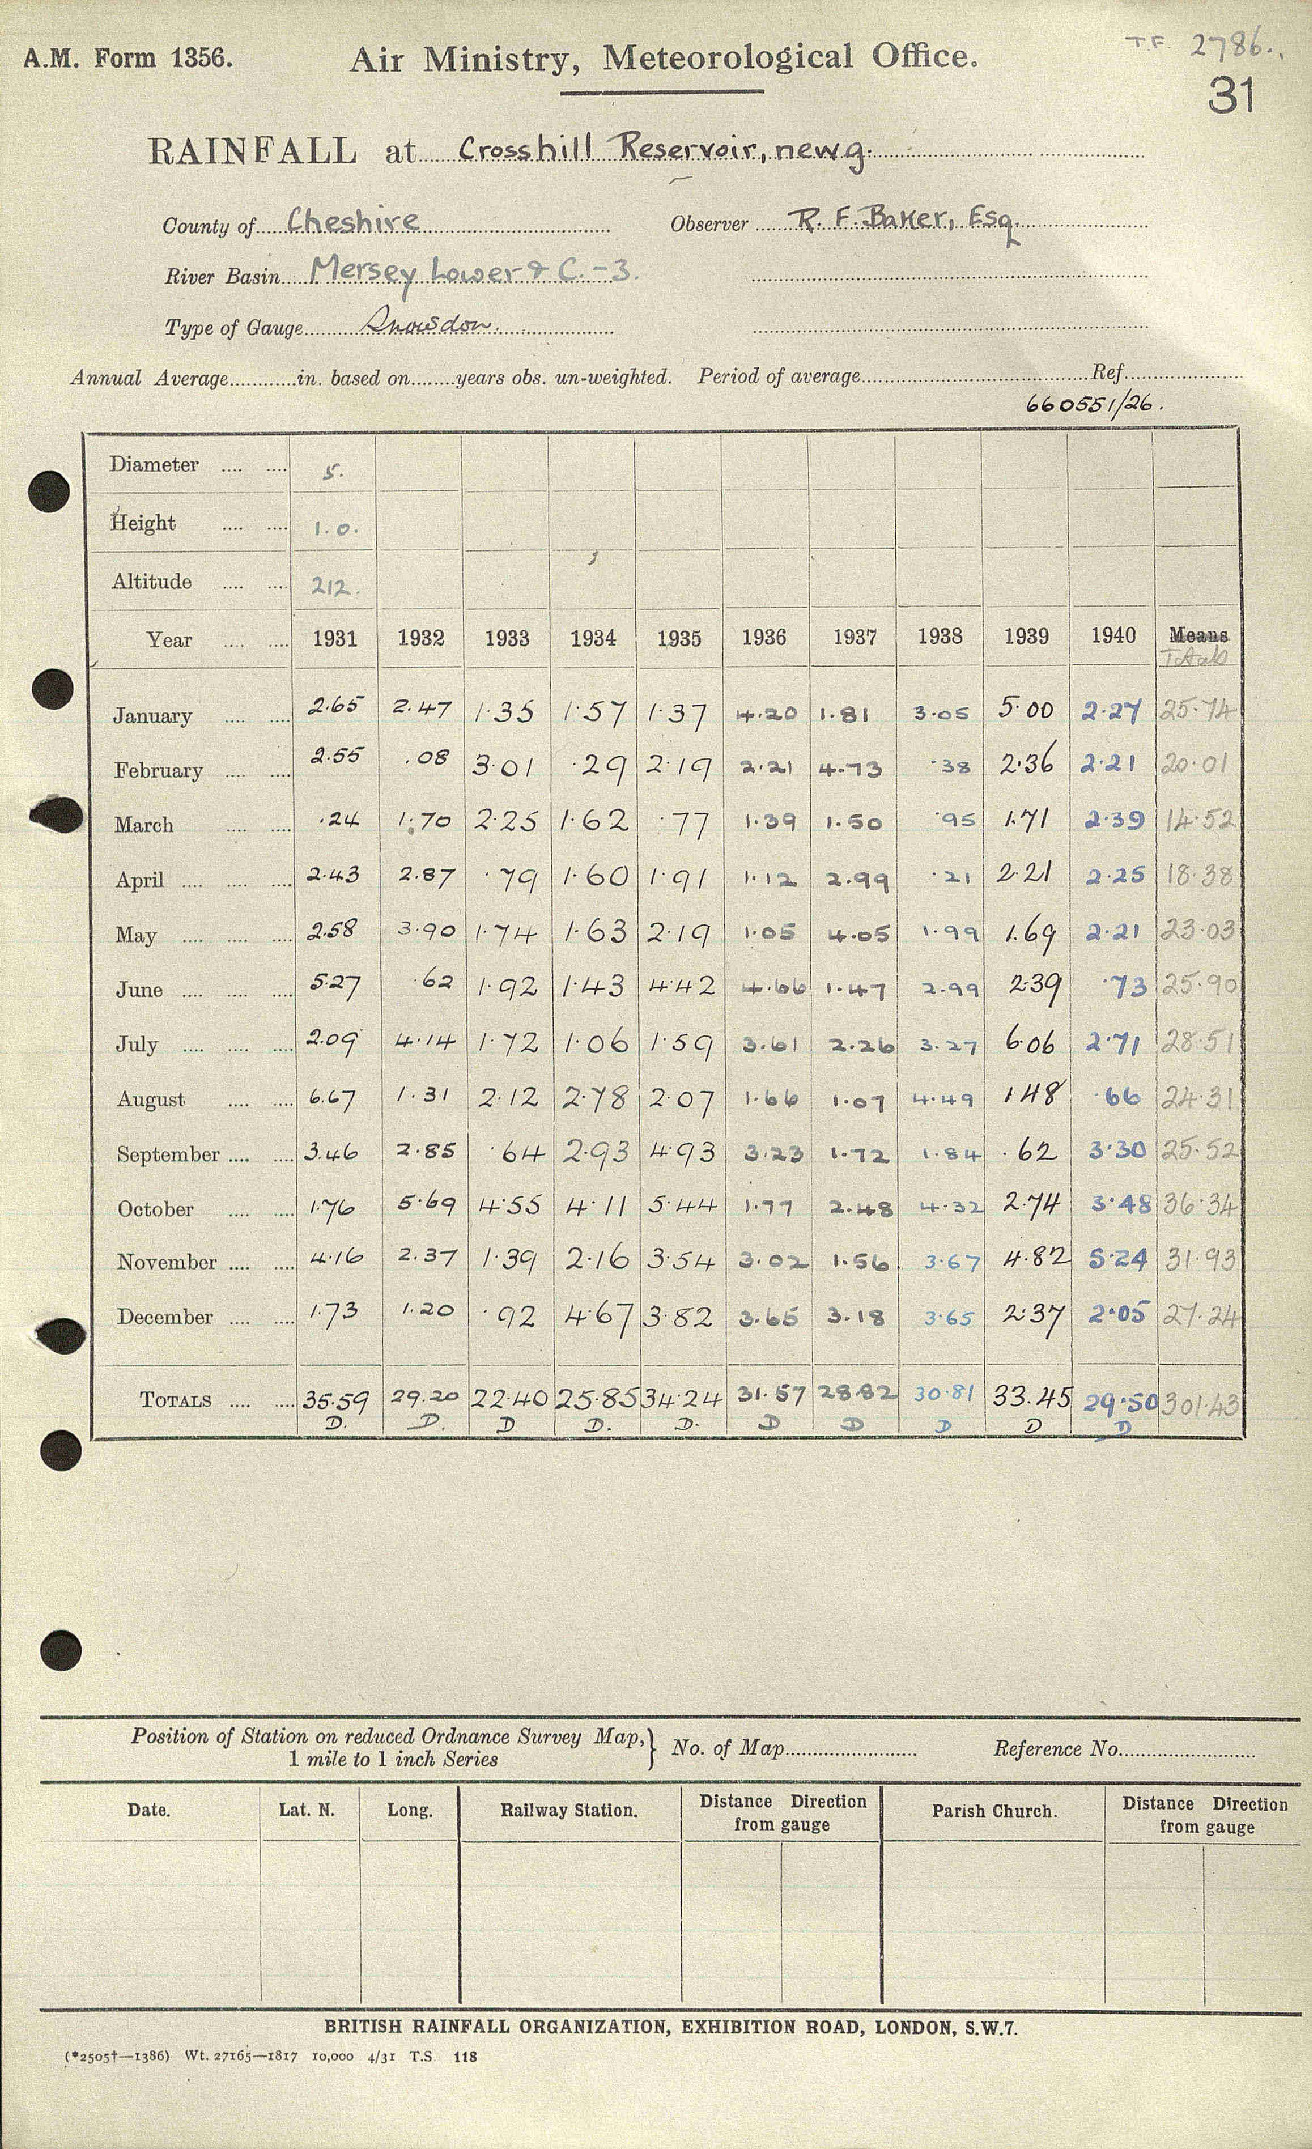 A.M. Form 1356.
Air Ministry, Meteorological Office.
T.F. 2786.
31
RAINFALL at Crosshill Reservoir, new g.
County of Cheshire Observer R. F. Baker, Esq.
River Basin Mersey Lower & C.-3.
Type of Gauge Snowdon.
Annual Average in. based on years obs. un-weighted. Period of average Ref
660551/26.
Diameter 5.
Height 1.0.
Altitude 212.
Year 1931 1932 1933 1934 1935 1936 1937 1938 1939 1940 Means
Totals
January 2.65 2.47 1.35 1.57 1.37 4.20 1.81 3.05 5.00 2.27 25.74
February 2.55 .08 3.01 .29 2.19 2.21 4.73 .38 2.36 2.21 20.01
March .24 1.70 2.25 1.62 .77 1.39 1.50 .95 1.71 2.39 14.52
April 2.43 2.87 .79 1.60 1.91 1.12 2.99 .21 2.21 2.25 18.38
May 2.58 3.90 1.74 1.63 2.19 1.05 4.05 1.99 1.69 2.21 23.03
June 5.27 .62 1.92 1.43 4.42 4.66 1.47 2.99 2.39 .73 25.90
July 2.09 4.14 1.72 1.06 1.59 3.61 2.26 3.27 6.06 2.71 28.51
August 6.67 1.31 2.12 2.78 2.07 1.66 1.07 4.49 1.48 .66 24.31
September 3.46 2.85 .64 2.93 4.93 3.23 1.72 1.84 .62 3.30 25.52
October 1.76 5.69 4.55 4.11 5.44 1.77 2.48 4.32 2.74 3.48 36.34
November 4.16 2.37 1.39 2.16 3.54 3.02 1.56 3.67 4.82 5.24 31.93
December 1.73 1.20 .92 4.67 3.82 3.65 3.18 3.65 2.37 2.05 27.24
TOTALS 35.59 29.20 22.40 25.85 34.24 31.57 28.82 30.81 33.45 29.50 301.43
D. D. D D. D. D D D D D
Position of Station on reduced Ordnance Survey Map,} No. of Map Reference No.
1 mile to 1 inch Series
Date. Lat. N. Long. Railway Station. Distance Direction Parish Church. Distance Direction
from gauge from gauge
BRITISH RAINFALL ORGANIZATION, EXHIBITION ROAD, LONDON, S.W.7.
(*2505†—1386) Wt. 27165—1817 10,000 4/31 T.S. 118